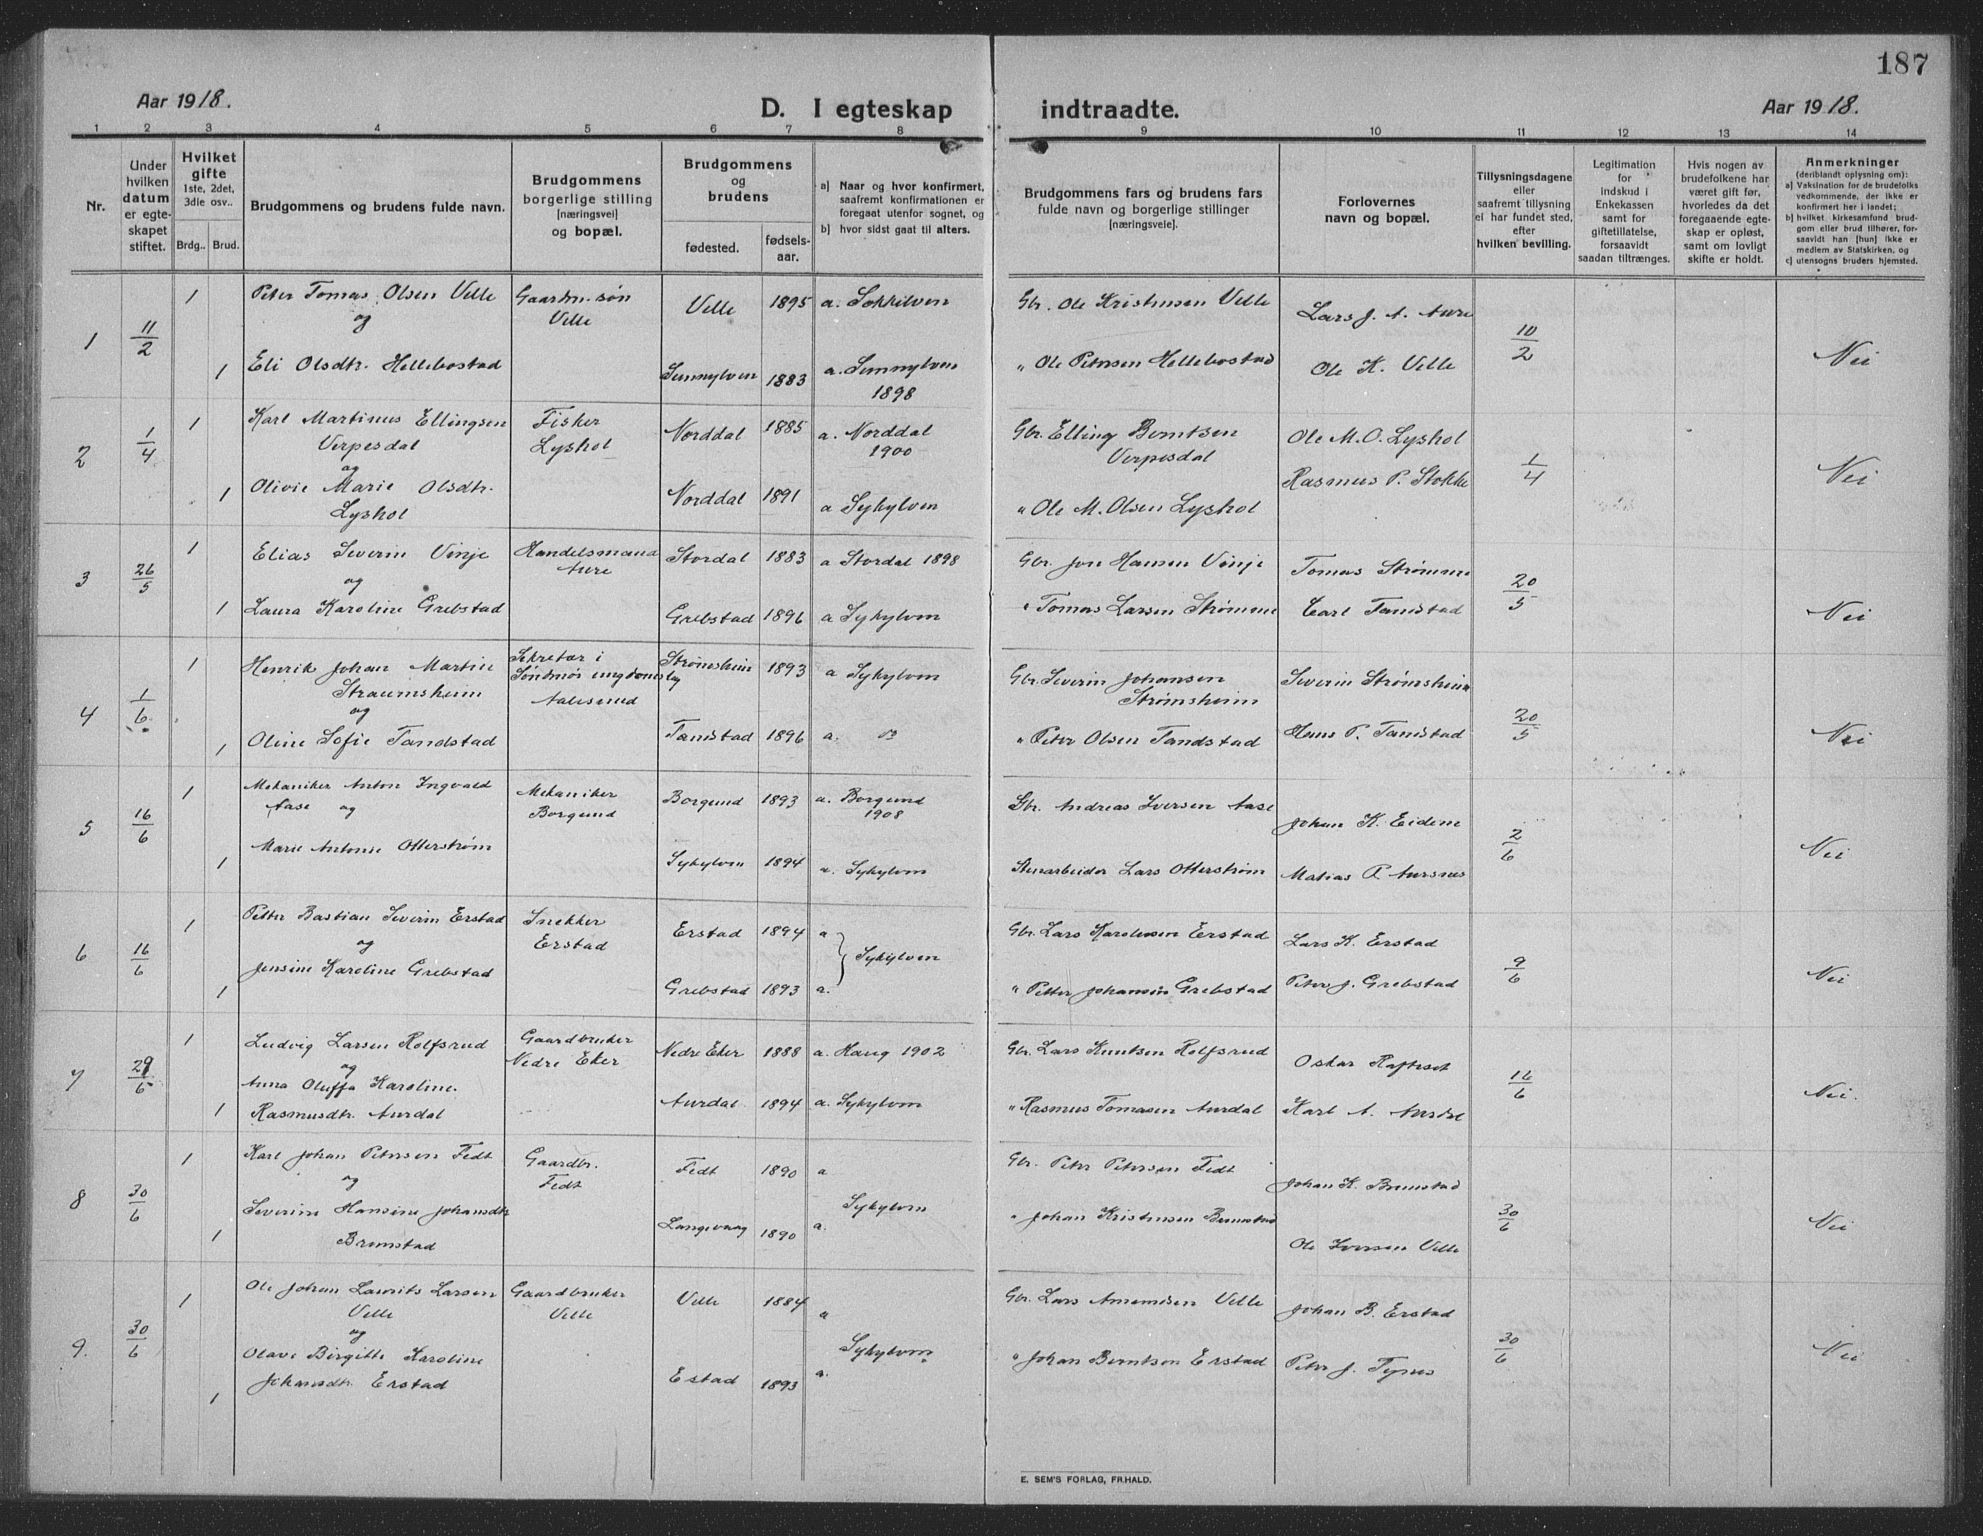 187
Aar 1918.
D. I egteskap indtraadte.
Aar 1918.
1 2 3 4 5 6 7 8 9 10 11 12 13 14
Nr.
Under hvilken datum er egteskapet stiftet.
Hvilket gifte 1ste, 2det, 3die osv..
Brdg.. Brud.
Brudgommens og brudens fulde navn.
Brudgommens borgerlige stilling [næringsvei] og bopæl.
Brudgommens og brudens
fødested. fødselsaar.
a) Naar og hvor konfirmert, saafremt konfirmationen er foregaat utenfor sognet, og
b) hvor sidst gaat til alters.
Brudgommens fars og brudens fars fulde navn og borgerlige stillinger [næringsveie].
Forlovernes navn og bopæl.
Tillysningsdagene eller saafremt tillysning ei har fundet sted, efter hvilken bevilling.
Legitimation for indskud i Enkekassen samt for giftetillatelse, forsaavidt saadan tiltrænges.
Hvis nogen av brudefolkene har været gift før, hvorledes da det foregaaende egteskap er opløst, samt om lovligt skifte er holdt.
Anmerkninger (deriblandt oplysning om):
a) Vaksination for de brudefolks vedkommende, der ikke er konfirmert her i landet;
b) hvilket kirkesamfund brudgom eller brud tilhører, forsaavidt han [hun] ikke er medlem av Statskirken, og
c) utensogns bruders hjemsted.
1 11/2 1 Peter Tomas Olsen Velle Gaardm. søn Velle 1895 a. Søkkelven Gbr. Ole Kristinsen Velle Lars J. A. Aure 10/2
og Velle
1 Eli Olsdtr. Hellebostad Sunnylven 1883 a. Sunnylven " Ole Petersen Hellebostad Ole K. Velle Nei
1898
2 1/4 1 Karl Martinus Ellingsen Fisker Norddal 1885 a. Norddal Gbr. Elling Berntsen Ole M. O. Lyshol 1/4
Verpesdal Lyshol 1900 Verpesdal
og
1 Olivie Marie Olsdtr. Norddal 1891 a Sykylven " Ole M. Olsen Lyshol Rasmus P. Stokke Nei
Lyshol
3 26/5 1 Elias Severin Vinje Handelsmand Stordal 1883 a Stordal 1898 Gbr. Jon Hansen Vinje Tomas Strømme 20/5
og Aure
1 Laura Karoline Grebstad Grebstad 1896 a Sykylven " Tomas Larsen Strømme Carl Tandstad Nei
4 1/6 1 Henrik Johan Martin Sekretær i Strømsheim 1893 a Sykylven Gbr. Severin Johansen Severin Strømsheim 20/5
Straumsheim Søndmør ungdomslag Strømsheim
og Aalesund
1 Oline Sofie Tandstad Tandstad 1896 a. " Peter Olsen Tandstad Hans P. Tandstad Nei
5 16/6 1 Mekaniker Anton Ingvald Mekaniker Borgund 1893 a. Borgund Gbr. Andreas Iversen Aase Johan K. Eidem 2/6
Aase og Borgund 1908
1 Marie Antonie Otterstrøm Sykylven 1894 a. Sykylven Stenarbeider Lars Otterstrøm Matias P. Aursnes Nei
6 16/6 1 Petter Bastian Severin Erstad Snekker Erstad 1894 a Gbr. Lars Karolusen Erstad Lars K. Erstad 9/6
og Erstad Sykylven
1 Jensine Karoline Grebstad Grebstad 1893 a. " Petter Johansen Grebstad Peter J. Grebstad Nei
7 29/6 1 Ludvig Larsen Rolfsrud Gaardbruker Nedre Eker 1888 a. Haug 1902 Gbr. Lars Knutsen Rolfsrud Oskar Rafteset 16/6
og Nedre Eker
Anna Oluffa Karoline.
1 Rasmusdtr. Aurdal Aurdal 1894 a. Sykylven " Rasmus Tomasen Aurdal Karl A. Aurdal Nei.
8 30/6 1 Karl Johan Petersen Fedt Gaardbr. Fedt 1890 a Gbr. Peter Petersen Fedt Johan K. Brunstad 30/6
og Fedt
Severine Hansine Johansdtr Sykylven
1 Brunstad Langevaag 1890 a. " Johan Kristinsen Brunstad Ole Iversen Velle Nei
9. 30/6 1 Ole Johan Laurits Larsen Gaardbruker Velle 1884 a Gbr. Lars Amundsen Velle Johan B. Erstad 30/6
Velle Velle
og
Olave Birgitte Karoline Sykylven
1 Johansdtr. Erstad Estad 1893 a. " Johan Berntsen Erstad Peter J. Tynes Nei
E. SEM'S FORLAG, FR.HALD.